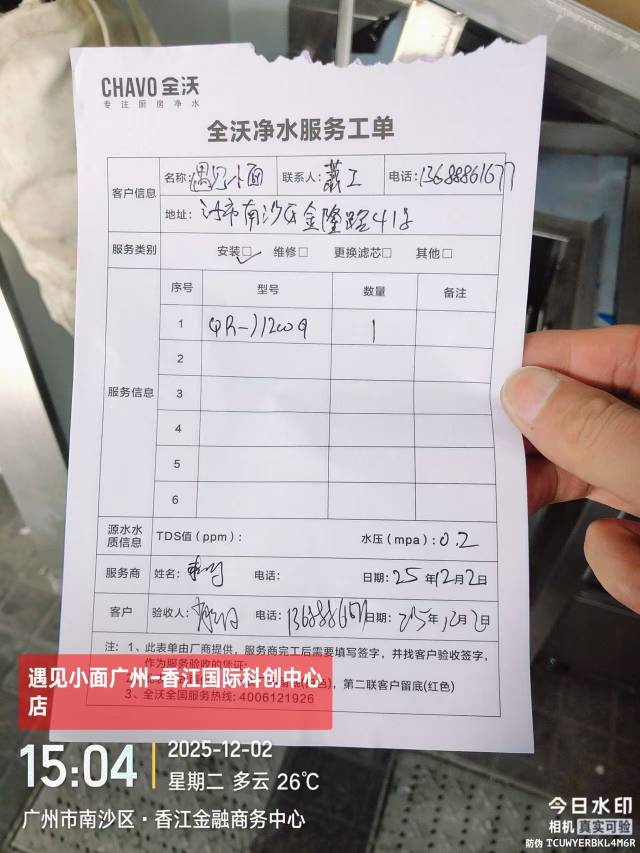 CHAVO 全沃
专注厨房净水
全沃净水服务工单
客户信息 名称: 遇见小面 联系人: 戴工 电话: 13688861677
地址: 市南沙区金隆路41号
服务类别 安装☑ 维修□ 更换滤芯□ 其他□
服务信息 序号 型号 数量 备注
1 QR-J1200g 1
2
3
4
5
6
源水水质信息 TDS值(ppm): 水压(mpa): 0.2
服务商 姓名: 电话: 日期: 25年12月2日
客户 验收人: 电话: 日期: 25年12月2日
注: 1、此表单由厂商提供，服务商完工后需要填写签字，并找客户验收签字，
作为服务验收的凭证;
第二联客户留底(红色)
3、全沃全国服务热线: 4006121926
遇见小面广州-香江国际科创中心
店
15:04
2025-12-02
星期二 多云 26℃
广州市南沙区·香江金融商务中心
今日水印
相机 真实可验
防伪 TCUWYERBKL4M6R